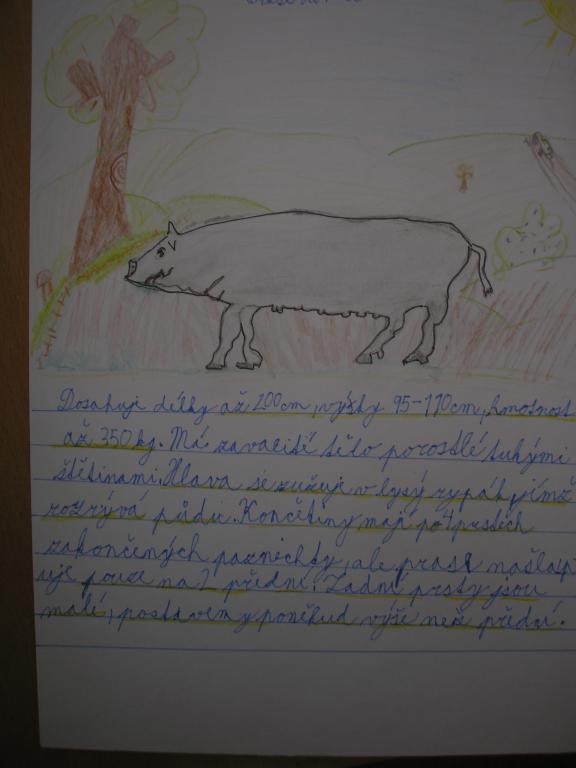 Dosahuje délky až 200cm, výšky 95-110cm, hmotnost
až 350kg. Má zavalité tělo porostlé tuhými
štětinami. Hlava se zužuje v lysý rypák, jímž
rozrývá půdu. Končetiny mají po 4 prstech
zakončených paznehty, ale prase našlap
uje pouze na 2 přední. Zadní prsty jsou
malé, postaveny poněkud výše než přední.